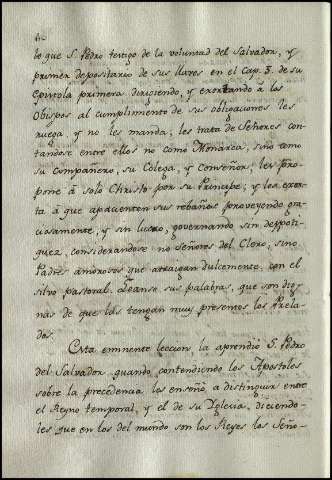 lo que S. Pedro testigo de la voluntad del Salvador, y
primer depositario de sus llaves en el Cap. 5. de su
Epistola primera dirigiendo, y exortando à los
Obispos al cumplimiento de sus obligaciones les
ruega, y no les manda; les trata de Señores con-
tandose entre ellos no como Monarca, sino como
su compañero, su Colega, y Conseñor; les pro-
pone à solo Christo por su Principe; y les exor-
ta à que apacienten sus rebaños proveyendo gra-
ciosamente, y sin lucro, governando sin despoti-
quez, considerandose no Señores del Clero, sino
Padres amorosos que atraigan dulcemente con el
silvo pastoral. Leanse sus palabras, que son dig-
nas de que las tengan muy presentes los Prela-
dos.
Esta eminente leccion la aprendiò S. Pedro
del Salvador, quando contendiendo los Apostoles
sobre la precedencia les enseñò a distinguir entre
el Reyno temporal, y el de su Yglesia, diciendo-
les que en los del mundo son los Reyes los Seño-